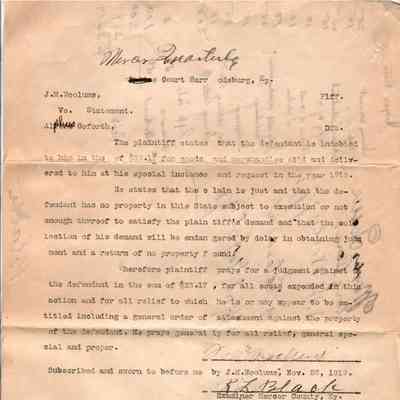 Mercer Quarterly
Court Harrodsburg, Ky.
J.M.Woolums, Plff.
Vs. Statement.
Goforth, Dft.
The plaintiff states that the defendant is intebted
to him in the of $23.17 for goods and merchandise sold and deliv-
ered to him at his special instance and request in the year 1912.
He states that the claim is just and that the de-
fendant has no property in this State subject to execution or not
enough thereof to satisfy the plaintiff's demand and that the col-
lection of his demand will be endangered by delay in obtaining judg
ment and a return of no property found.
Wherefore plaintiff prays for a judgment against
the defendant in the sum of $23.17, for all costs expended in this
action and for all relief to which he is or may appear to be en-
titled including a general order of attachment against the property
of the defendant. He prays generally for all relief, general spe-
cial and proper.
Subscribed and sworn to before me by J.M.Woolums, Nov. 1912.
Black
Examiner Mercer County, Ky.